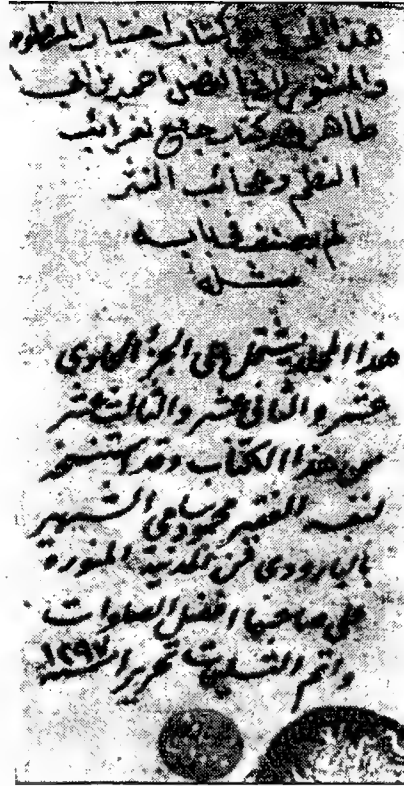 هذا الجزء من كتاب اختيار المنظوم
والمنثور لابي الفضل احمد بن ابي
طاهر وهو كتاب جامع لغرائب
النظم وعجائب النثر
لم يصنف في بابه
مثله
هذا المجلد يشتمل على الجزء الحادى
عشر والثانى عشر والثالث عشر
من هذا الكتاب وقد استنسخه
لنفسه الفقير محمود سامى الشهير
بالبارودى من المدينة المنورة
على صاحبها افضل الصلوات
واتم التسليمات تحريرا سنة ١٢٩٧